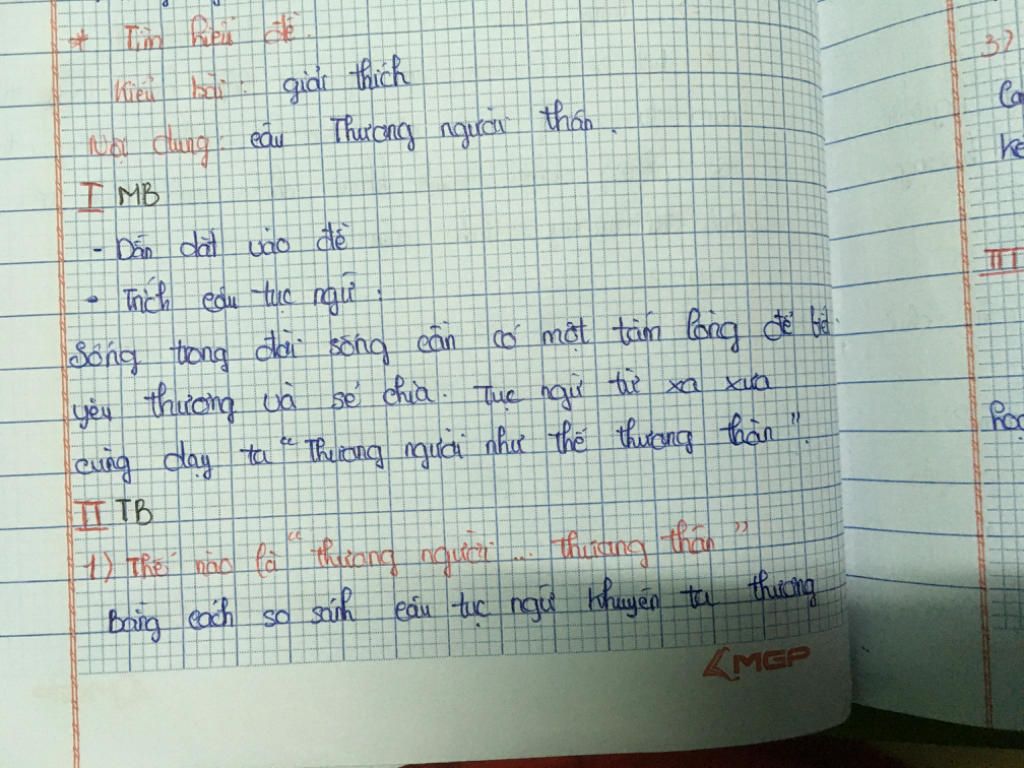 * Tìm hiểu đề.
Kiểu bài: giải thích
Nội dung: câu Thương người thân.
I MB
- Dẫn dắt vào đề
- Trích câu tục ngữ:
Sống trong đời sống cần có một tấm lòng để biết
yêu thương và sẻ chia. Tục ngữ từ xa xưa
cũng dạy ta "Thương người như thể thương thân".
II TB
1) Thế nào là "thương người ... thương thân"
Bằng cách so sánh câu tục ngữ khuyên ta thương
MGP
3)
III